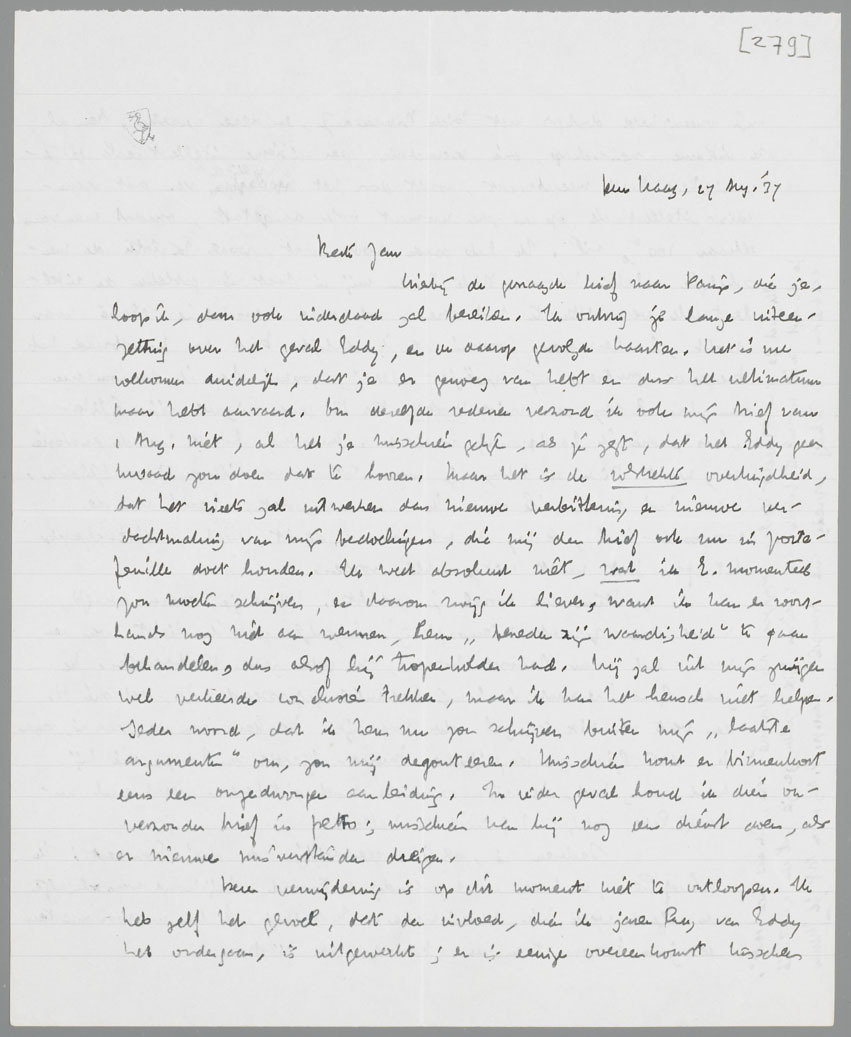 [279]
Den Haag, 27 Aug. '37
Beste Jan
Hierbij de gevraagde brief naar Parijs, die je,
hoop ik, dan ook inderdaad zal bereiken. Ik ontving je lange uiteen-
zetting over het geval Eddy, en de daarop gevolgde kaarten. Het is me
volkomen duidelijk, dat je er genoeg van hebt en dus het ultimatum
maar hebt aanvaard. Om dezelfde redenen verzond ik ook mijn brief van
1 Aug. niet, al heb je misschien gelijk, als je zegt, dat het Eddy geen
kwaad zou doen dat te hooren. Maar het is de volstrekte overtuigdheid,
dat het niets zal uitwerken dan nieuwe verbittering en nieuwe ver-
dachtmaking van mijn bedoelingen, die mij den brief ook nu in porte-
feuille doet houden. Ik weet absoluut niet, wat ik E. momenteel
zou moeten schrijven, en daarom zwijg ik liever, want ik kan er voors-
hands nog niet aan wennen, hem „beneden zijn waardigheid" te gaan
behandelen, dus alsof hij tropenkolder had. Hij zal uit mijn zwijgen
wel verkeerde conclusies trekken, maar ik kan het heusch niet helpen.
Ieder woord, dat ik hem nu zou schrijven buiten mijn „laatste
argumenten" om, zou mij degouteeren. Misschien komt er binnenkort
eens een ongedwongen aanleiding. In ieder geval houd ik dien on-
verzonden brief in petto; misschien kan hij nog eens dienst doen, als
er nieuwe misverstanden dreigen.
Een verwijdering is op dit moment niet te ontloopen. Ik
heb zelf het gevoel, dat de invloed, dien ik jaren lang van Eddy
heb ondergaan, is uitgewerkt; er is eenige overeenkomst tusschen